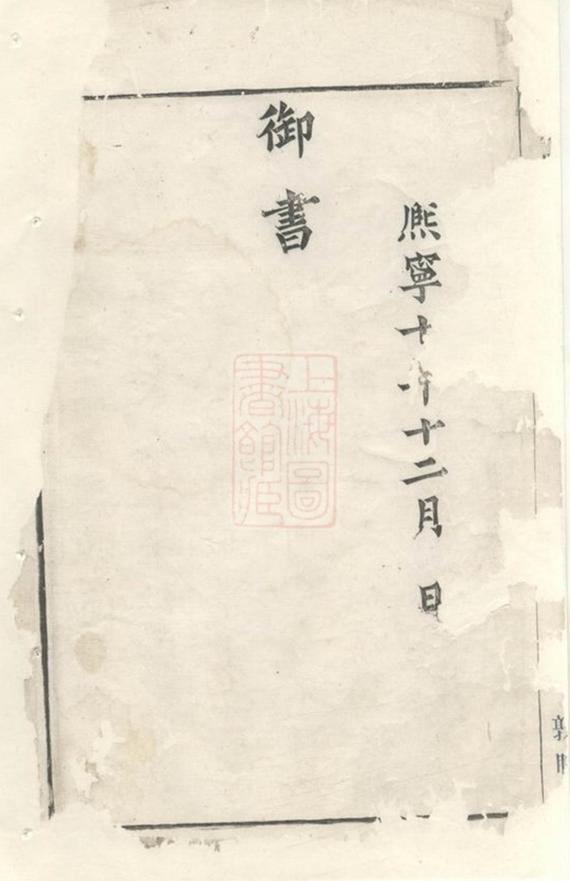 熈寧十年十二月 日
御書
上海圖
書館藏